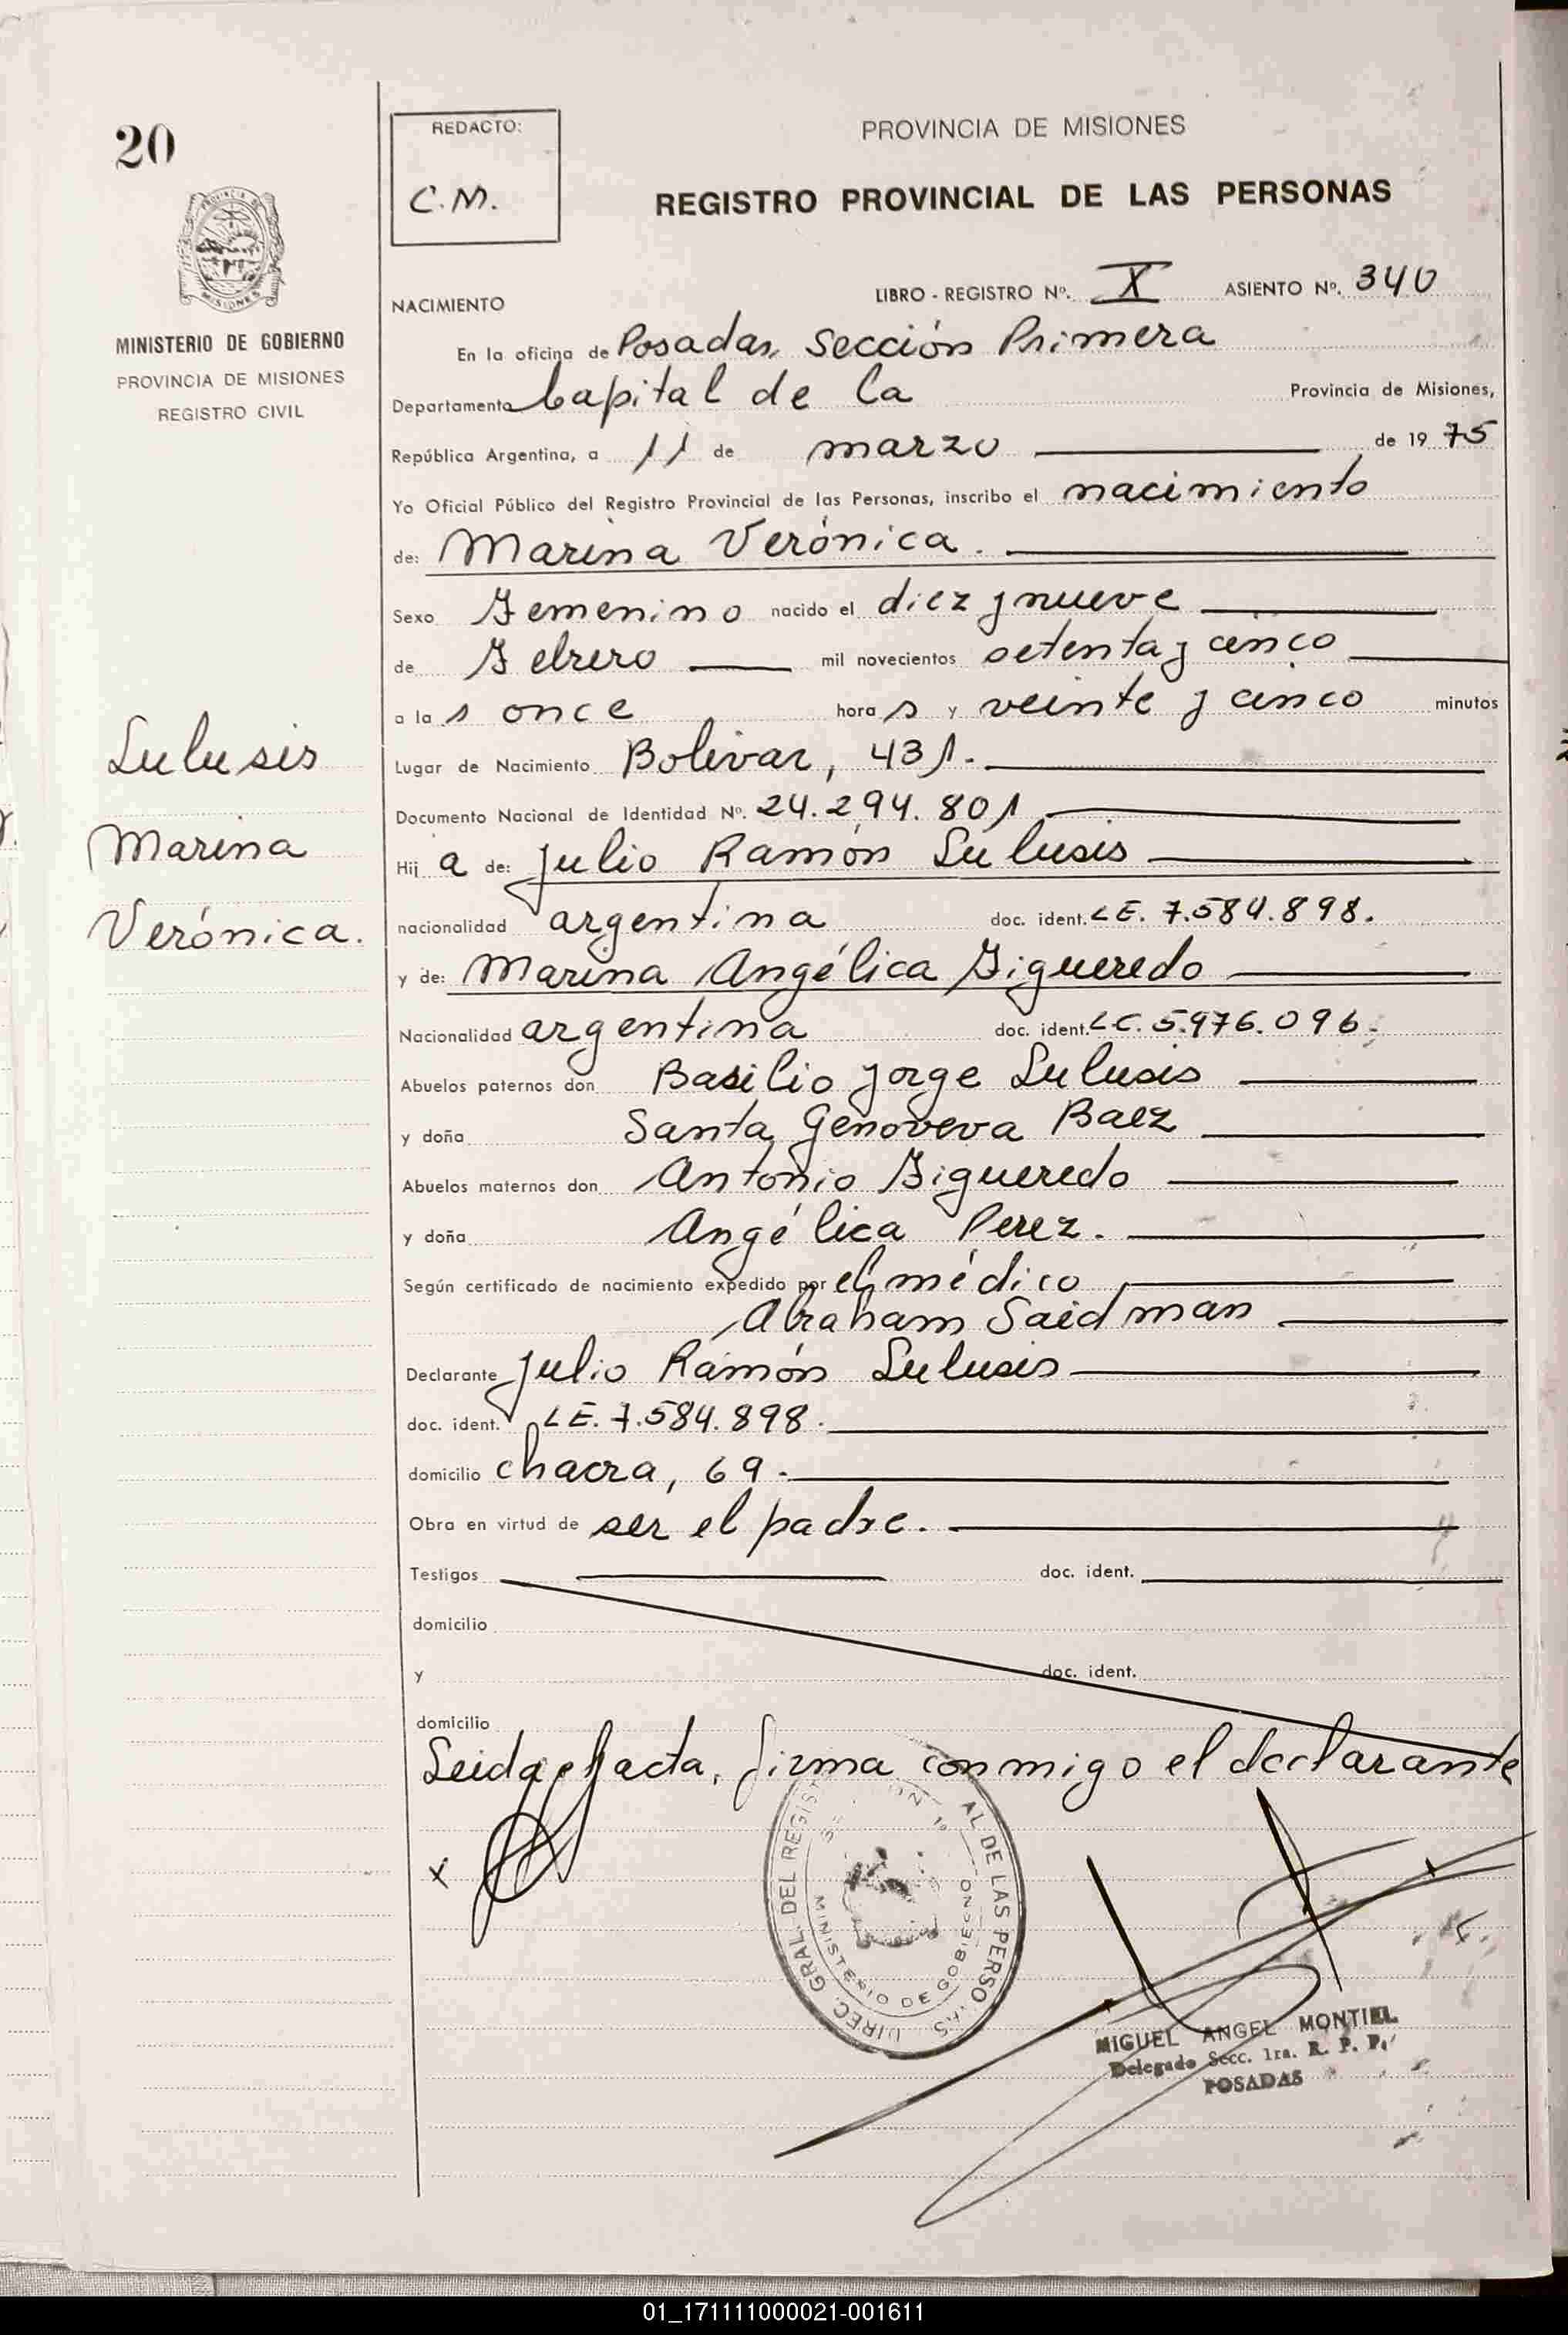 20
REDACTO:
C.M.
PROVINCIA DE MISIONES
REGISTRO PROVINCIAL DE LAS PERSONAS
MISIONES
MINISTERIO DE GOBIERNO
PROVINCIA DE MISIONES
REGISTRO CIVIL
NACIMIENTO
LIBRO - REGISTRO Nº. X ASIENTO Nº. 340
En la oficina de Posadas, Sección Primera
Departamento Capital de la Provincia de Misiones,
República Argentina, a 11 de marzo de 19 75
Yo Oficial Público del Registro Provincial de las Personas, inscribo el nacimiento
de: Marina Verónica.
Sexo Femenino nacido el diez y nueve
de Febrero mil novecientos setenta y cinco
a la s once hora s y veinte y cinco minutos
Lugar de Nacimiento Bolivar, 431.
Documento Nacional de Identidad Nº. 24.294.801
Hij a de: Julio Ramón Lulusis
nacionalidad argentina doc. ident. LE. 7.584.898.
y de: Marina Angélica Figueredo
Nacionalidad argentina doc. ident. LC. 5.976.096.
Abuelos paternos don Basilio Jorge Lulusis
y doña Santa Genoveva Baez
Abuelos maternos don Antonio Figueredo
y doña Angélica Perez.
Según certificado de nacimiento expedido por el médico
Abraham Saidman
Declarante Julio Ramón Lulusis
doc. ident. LE. 7.584.898.
domicilio chacra, 69.
Obra en virtud de ser el padre.
Testigos doc. ident.
domicilio
y doc. ident.
domicilio
Leida el acta, firma conmigo el declarante
x
Lulusis
Marina
Verónica.
DIREC. GRAL. DEL REGIST AL DE LAS PERSONAS
MINISTERIO DE GOBIERNO
MIGUEL ANGEL MONTIEL
Delegado Secc. 1ra. R. P. P.
POSADAS
01_171111000021-001611